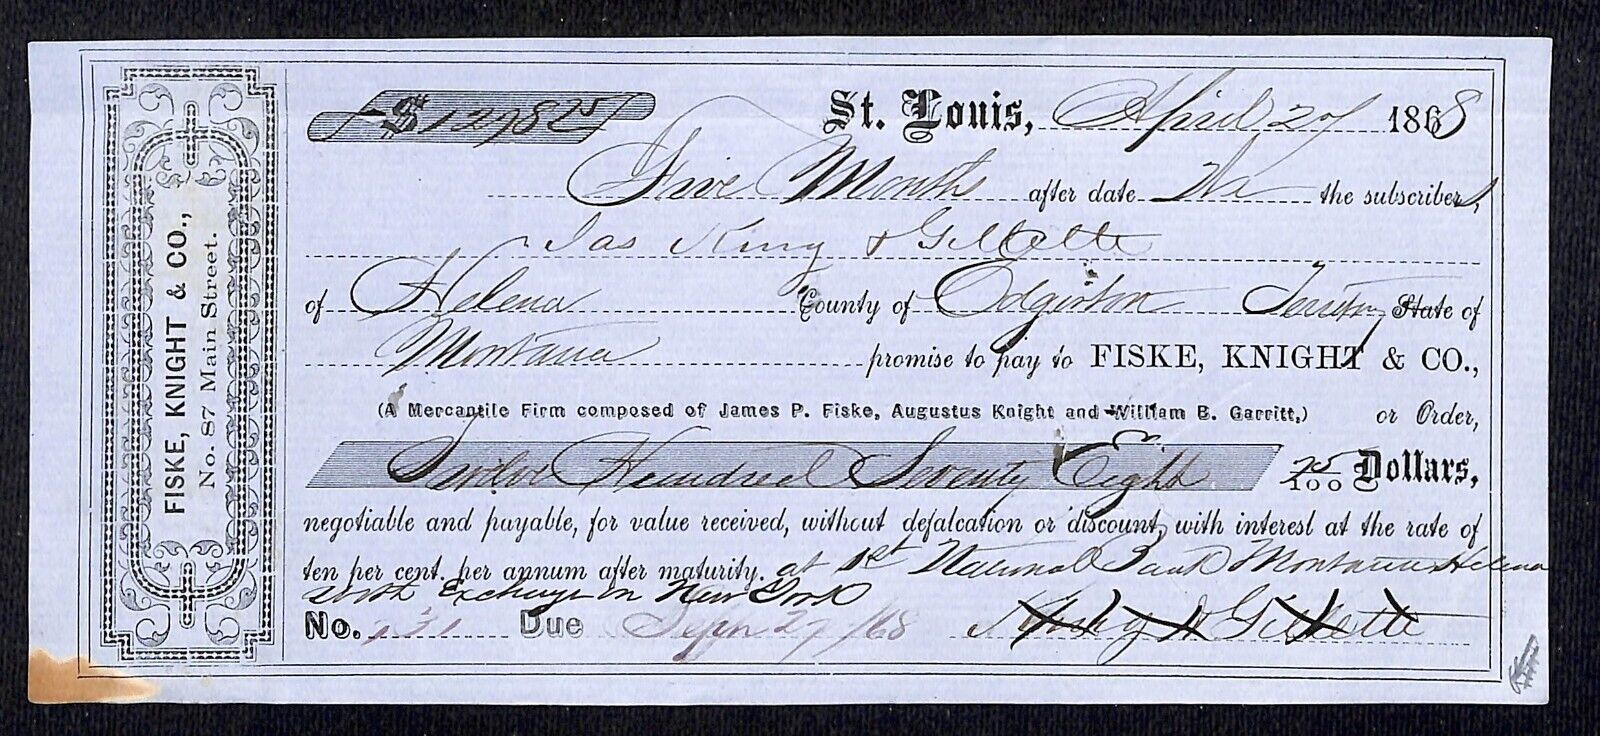 FISKE, KNIGHT & CO.,
No. 87 Main Street.
$1278 25 St. Louis, April 27 1868
Five Months after date We the subscribers,
Jas King & Gillette
of Helena County of Edgerton Territory State of
Montana promise to pay to FISKE, KNIGHT & CO.,
(A Mercantile Firm composed of James P. Fiske, Augustus Knight and William B. Garritt,) or Order,
Twelve Hundred Seventy Eight 25/100 Dollars,
negotiable and payable, for value received, without defalcation or discount, with interest at the rate of
ten per cent. per annum after maturity. at 1st National Bank Montana Helena
with Exchange on New York
No. 131 Due Sepn 27/68 King & Gillette